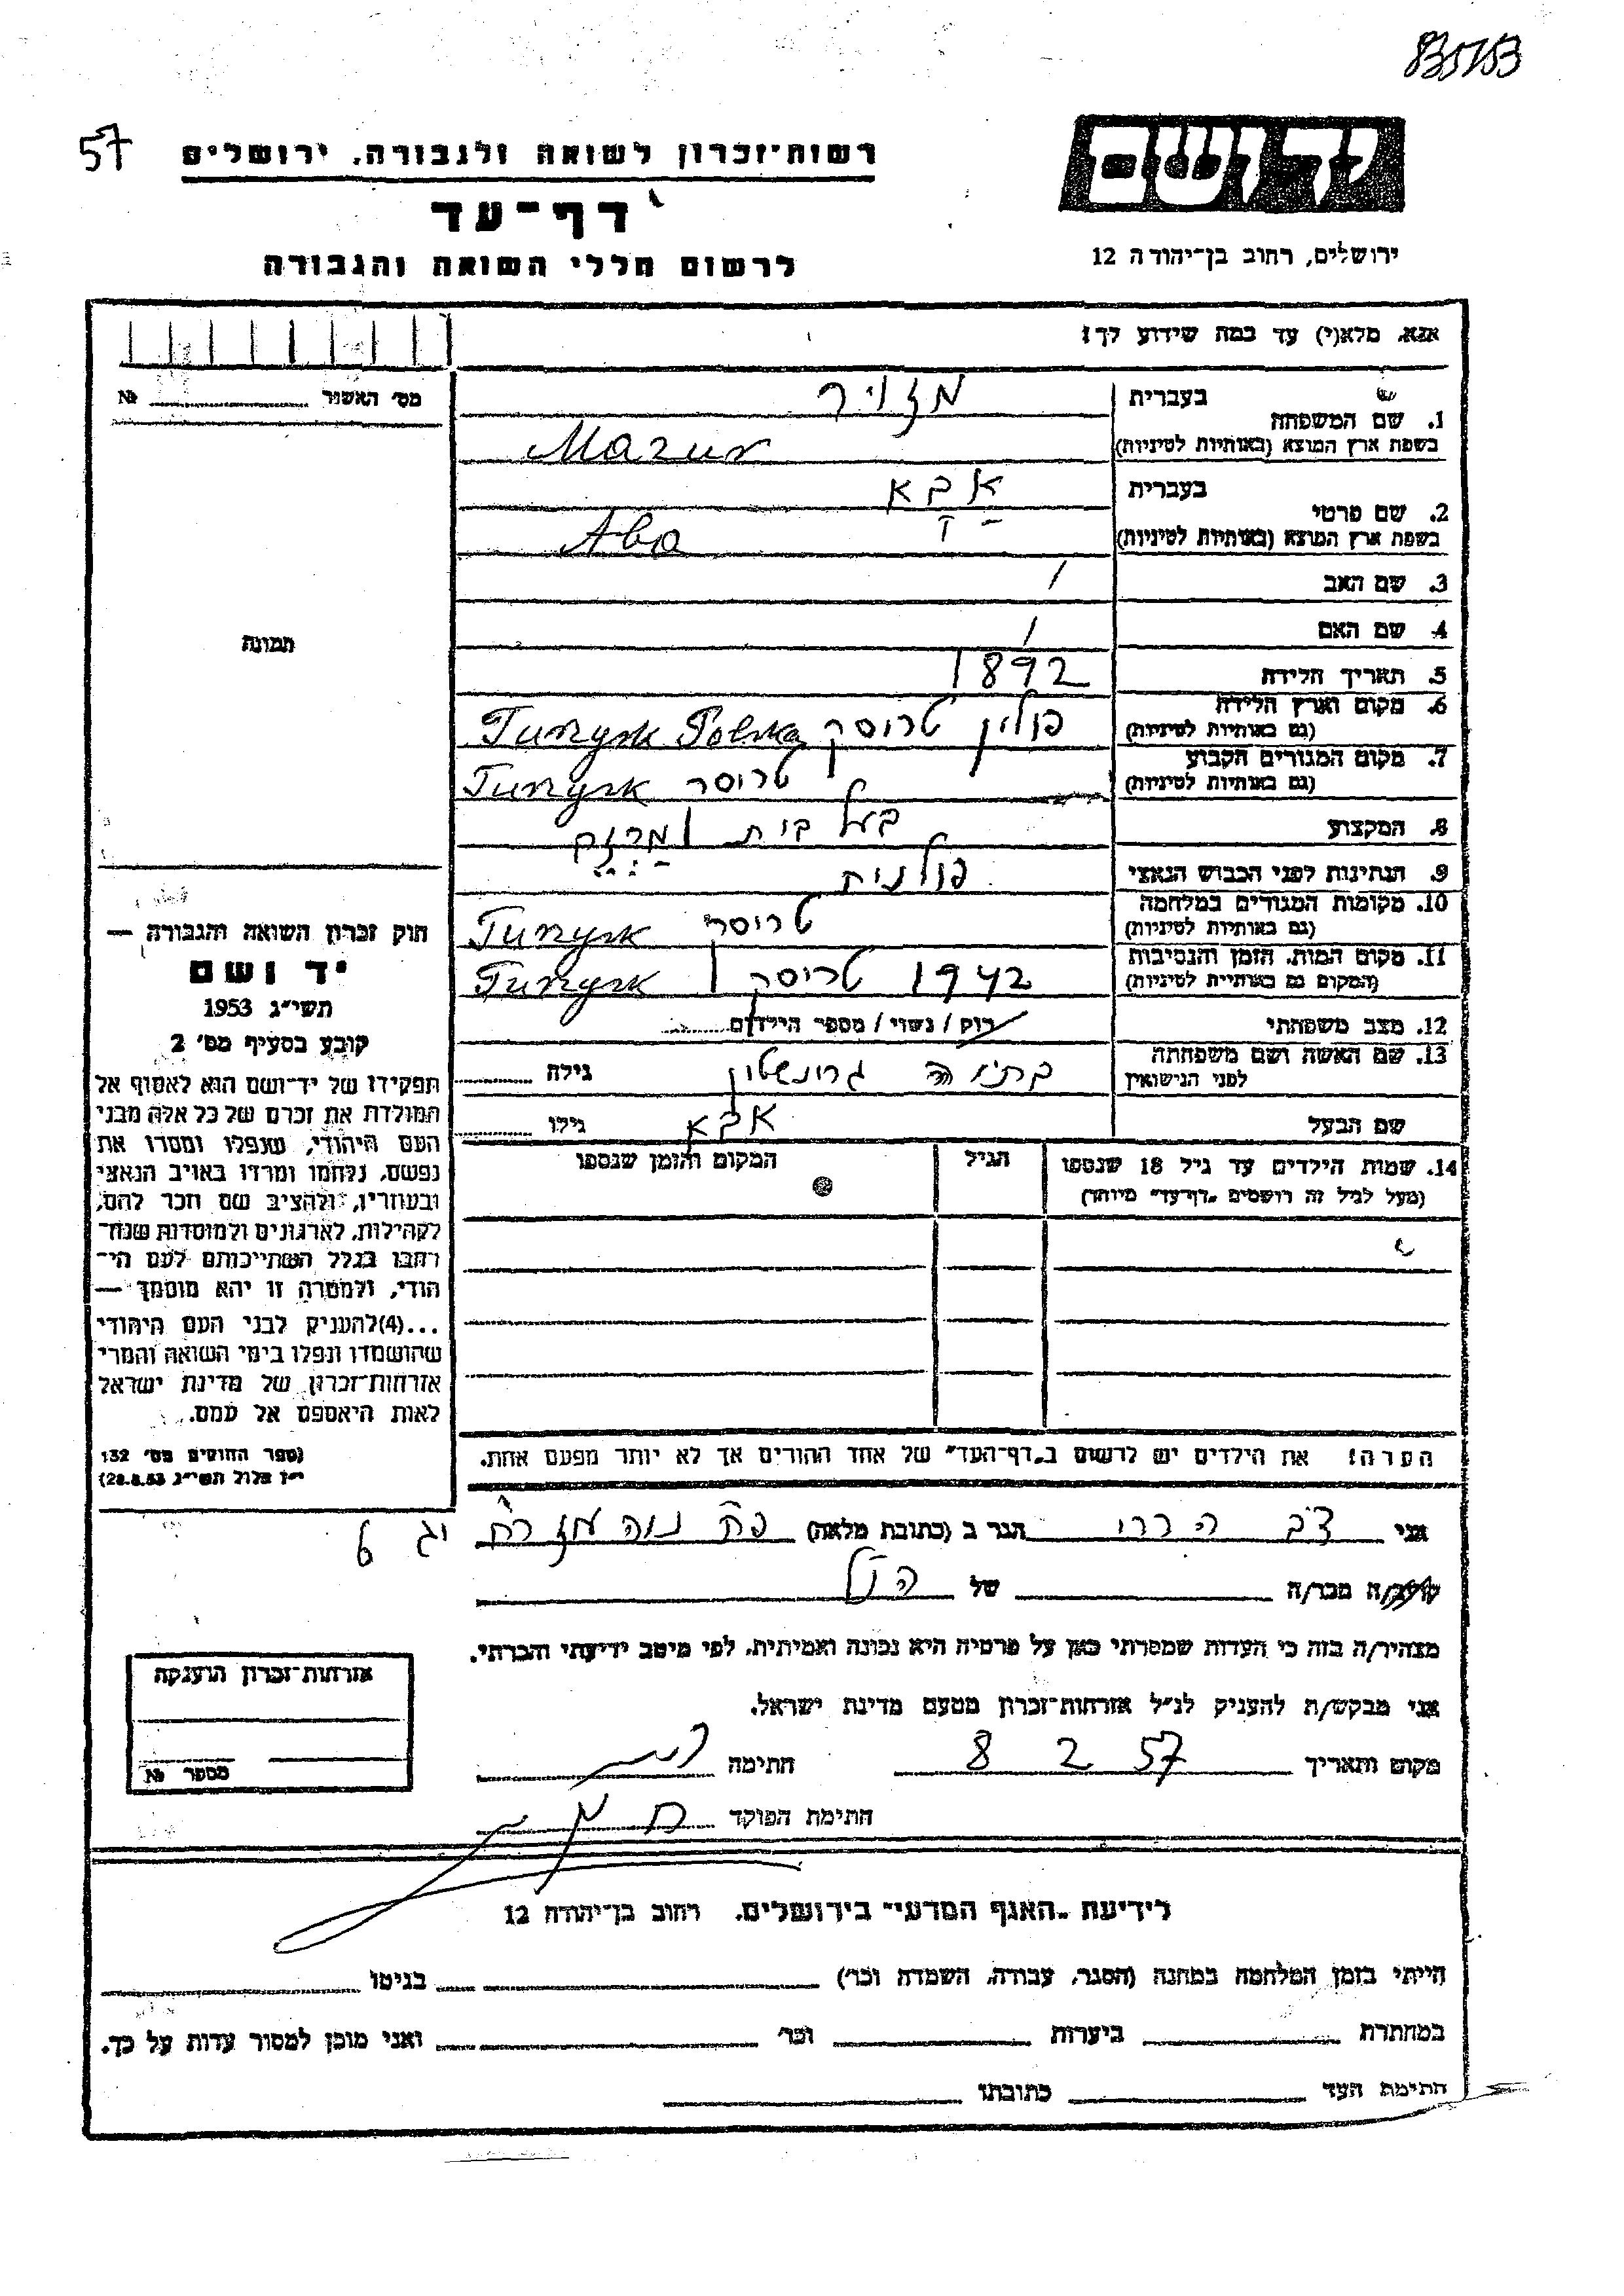 57
רשות־זכרון לשואה ולגבורה, ירושלים
יד ושם
דף־עד
לרשום חללי השואה והגבורה
ירושלים, רחוב בן־יהודה 12
אנא, מלא(י) עד כמה שידוע לך!
מס׳ האשור № ............
1. שם המשפחה
בעברית מזויר
בשפת ארץ המוצא (באותיות לטיניות) Mazur
2. שם פרטי
בעברית אבא
בשפת ארץ המוצא (באותיות לטיניות) Aba
3. שם האב /
4. שם האם /
תמונה
5. תאריך הלידה 1892
6. מקום וארץ הלידה
(גם באותיות לטיניות) פולין טריסק Turzysk Polska
7. מקום המגורים הקבוע
(גם באותיות לטיניות) טריסק Turzysk
8. המקצוע בעל בית
9. הנתינות לפני הכבוש הנאצי פולנית
10. מקומות המגורים במלחמה
(גם באותיות לטיניות) טריסק Turzysk
11. מקום המות, הזמן והנסיבות
(המקום גם באותיות לטיניות) 1942 טריסק Turzysk
12. מצב משפחתי רוק / נשוי / מספר הילדים
13. שם האשה ושם משפחתה
לפני הנישואין בתיה גרונשטון גילה
שם הבעל אבא גילו
14. שמות הילדים עד גיל 18 שנספו
(מעל לגיל זה רושמים „דף־עד״ מיוחד)
הגיל
המקום והזמן שנספו
חוק זכרון השואה והגבורה —
יד ושם
תשי״ג 1953
קובע בסעיף מס׳ 2
תפקידו של יד־ושם הוא לאסוף אל
המולדת את זכרם של כל אלה מבני
העם היהודי, שנפלו ומסרו את
נפשם, נלחמו ומרדו באויב הנאצי
ובעוזריו, ולהציב שם וזכר להם,
לקהילות, לארגונים ולמוסדות שנח־
רבו בגלל השתייכותם לעם הי־
הודי, ולמטרה זו יהא מוסמך —
...(4)להעניק לבני העם היהודי
שהושמדו ונפלו בימי השואה והמרי
אזרחות־זכרון של מדינת ישראל
לאות היאספם אל עמם.
(ספר החוקים מס׳ 132
י״ז אלול תשי״ג 28.8.53)
הערה: את הילדים יש לרשום ב„דף־העד״ של אחד ההורים אך לא יותר מפעם אחת.
אני צבי הררי הגר ב (כתובת מלאה) פת נוה מזרח יג 6
קרוב/ה מכר/ה של הנ״ל
מצהיר/ה בזה כי העדות שמסרתי כאן על פרטיה היא נכונה ואמיתית, לפי מיטב ידיעתי והכרתי.
אני מבקש/ת להעניק לנ״ל אזרחות־זכרון מטעם מדינת ישראל.
מקום ותאריך 8 2 57 חתימה
חתימת הפוקד
אזרחות־זכרון הוענקה
מספר №
לידיעת „האגף המדעי״ בירושלים, רחוב בן־יהודה 12
הייתי בזמן המלחמה במחנה (הסגר, עבודה, השמדה וכו׳) בגיטו
במחתרת ביערות וכו׳ ואני מוכן למסור עדות על כך.
חתימת העד כתובתו